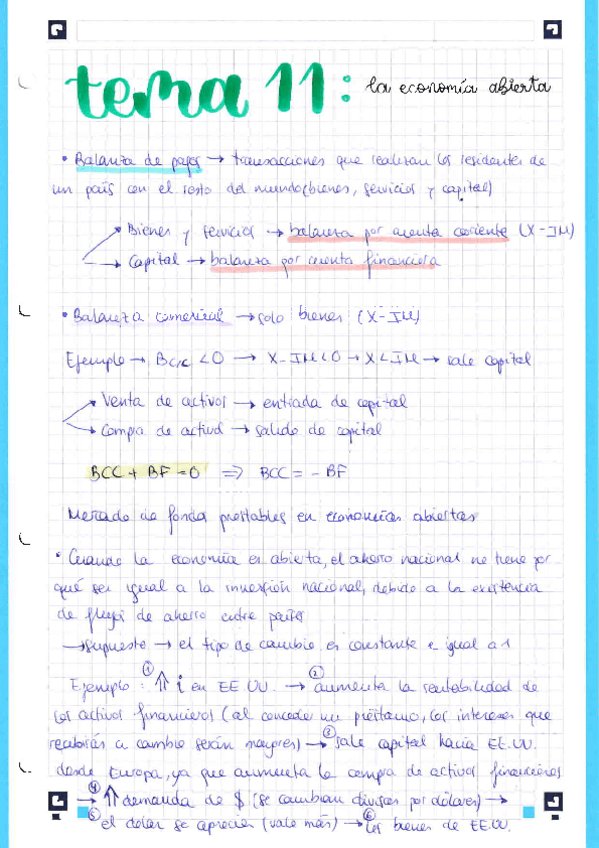 tema 11: la economía abierta
• Balanza de pagos → transacciones que realizan los residentes de
un país con el resto del mundo (bienes, servicios y capital)
Bienes y servicios → balanza por cuenta corriente (X-IM)
Capital → balanza por cuenta financiera
• Balanza comercial → solo bienes (X-IM)
Ejemplo → Bc/c < 0 → X-IM < 0 → X < IM → sale capital
Venta de activos → entrada de capital
Compra de activos → salida de capital
BCC + BF = 0 ⇒ BCC = - BF
Mercado de fondos prestables en economías abiertas
• Cuando la economía es abierta, el ahorro nacional no tiene por
qué ser igual a la inversión nacional, debido a la existencia
de flujos de ahorro entre países
→ Supuesto → el tipo de cambio es constante e igual a 1
Ejemplo: ① ↑ i en EE.UU. → ② aumenta la rentabilidad de
los activos financieros (al conceder un préstamo, los intereses que
recibirás a cambio serán mayores) → ③ sale capital hacia EE.UU.
desde Europa, ya que aumenta la compra de activos financieros
④ → ↑ demanda de $ (se cambian divisas por dólares) →
⑤ el dólar se aprecia (vale más) → ⑥ los bienes de EE.UU.